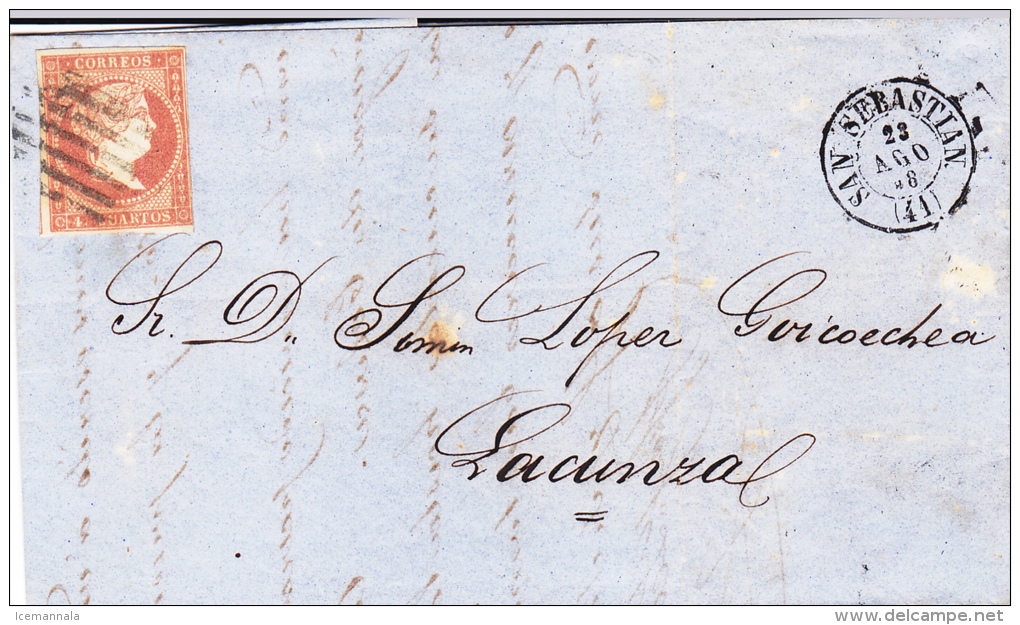 CORREOS
4. CUARTOS
SAN SEBASTIAN
23
AGO
(41)
Sr. D.n Simin Loper Goicoechea
Lacunza
Icemannala
delcampe.net